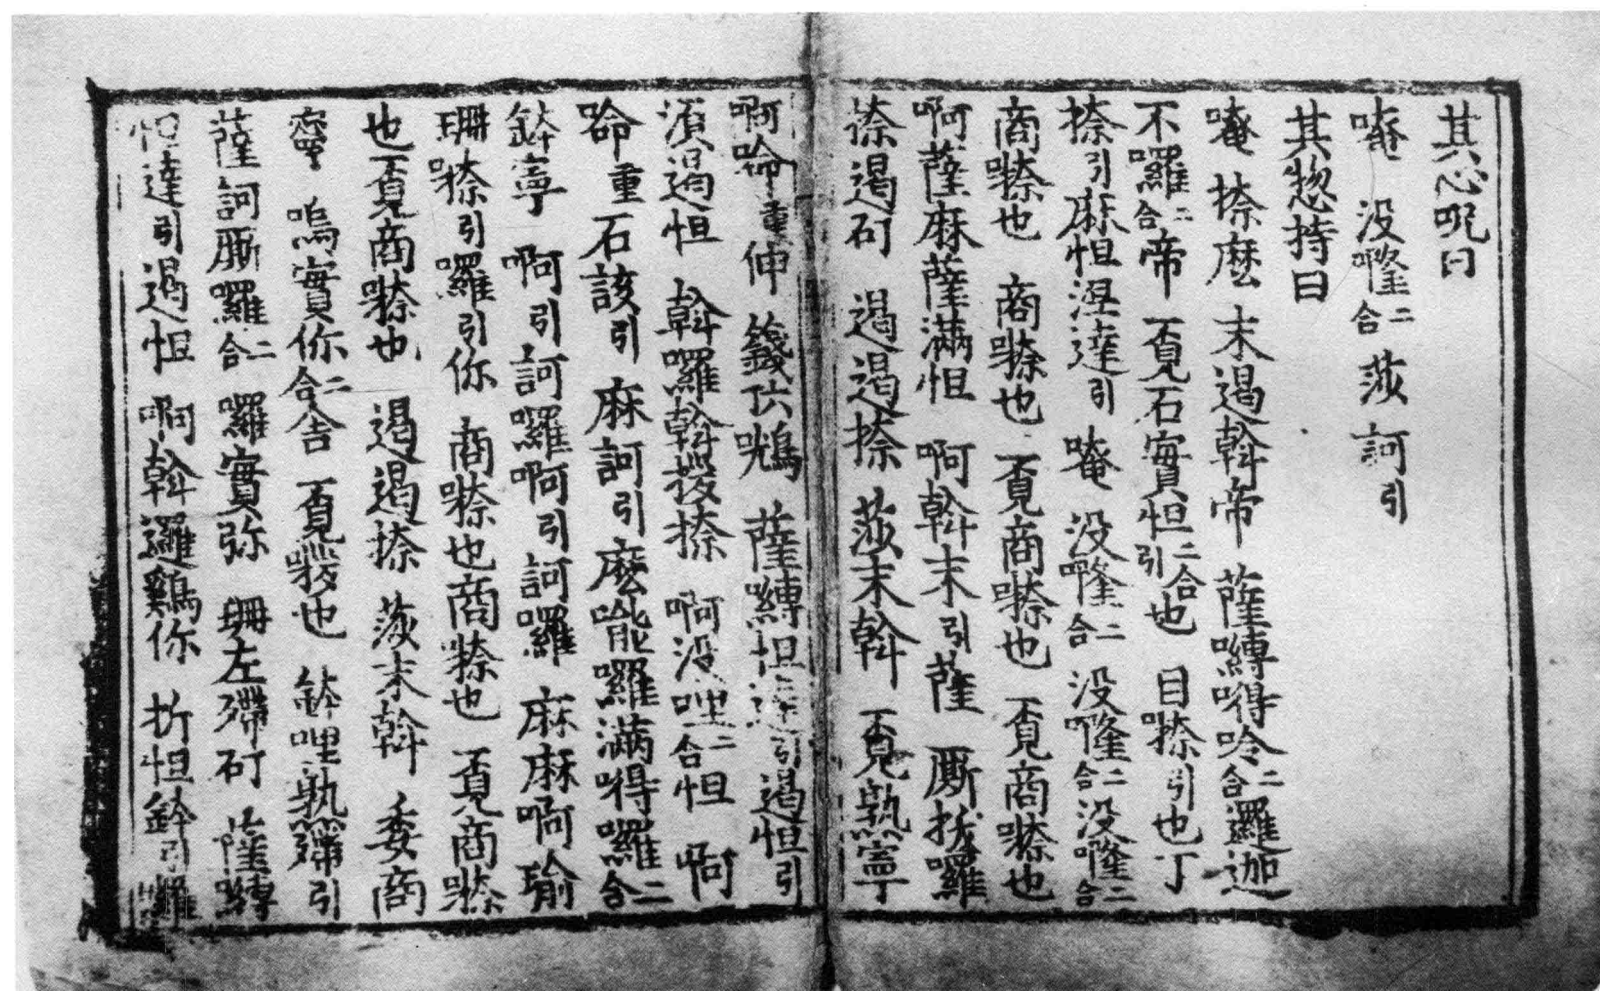 其心呪曰
唵 没隆二合 莎 訶引
其惣持曰
唵 捺麼 末遏斡帝 薩嚩嘚呤二合邏迦
不囉二合帝 覔石實怛二合引也 目捺引也丁
捺引麻怛涅達引 唵 没隆二合 没隆二合没隆二合
商捺也 商捺也 覔商捺也 覔商捺也
啊薩麻薩滿怛 啊斡末引薩 厮拔囉
捺遏矴 遏遏捺 莎末斡 覔孰寧
啊 重伸 薩嚩怛達引遏怛引
須遏怛 斡囉斡拶捺 啊没哩二合怛 啊
重石該引 麻訶引麼 囉滿嘚囉二合
鉢寧 啊引訶囉啊引訶囉 麻麻啊瑜
珊捺引囉引你 商捺也商捺也 覔商捺
也覔商捺也 遏遏捺 莎末斡 委商
嗚實你二合舍 覔 也 鉢哩孰 引
薩訶厮囉二合 囉實弥 珊左 矴 薩嚩
怛達引遏怛 啊斡邏 你 折怛 引